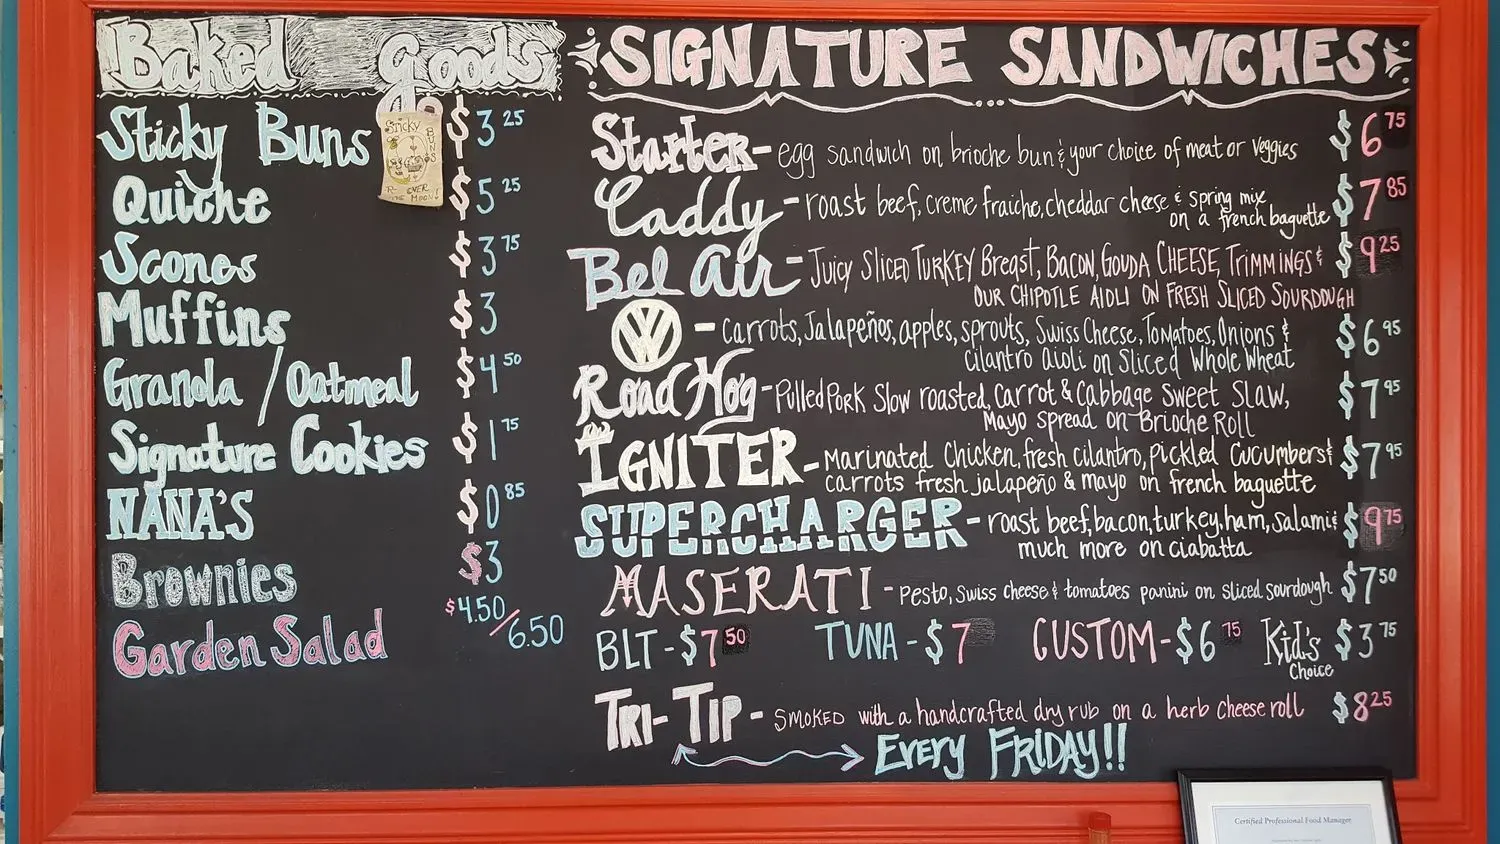 Baked Goods
Sticky Buns $3 25
Quiche $5 25
Scones $3 75
Muffins $3
Granola / Oatmeal $4 50
Signature Cookies $1 75
NANA'S $0 85
Brownies $3
Garden Salad $4.50/6.50
Sticky
BUNS
OVER
THE MOON
SIGNATURE SANDWICHES
Starter - egg sandwich on brioche bun & your choice of meat or veggies $6 75
Caddy - roast beef, creme fraiche, cheddar cheese & spring mix $7 85
on a french baguette
Bel Air - Juicy Sliced Turkey Breast, Bacon, Gouda Cheese, Trimmings & $9 25
our chipotle aioli on fresh sliced sourdough
VW - carrots, Jalapeños, apples, sprouts, Swiss Cheese, Tomatoes, Onions & $6 95
cilantro aioli on Sliced Whole Wheat
Road Hog - Pulled Pork Slow roasted, Carrot & Cabbage Sweet Slaw, $7 95
Mayo spread on Brioche Roll
IGNITER - marinated Chicken, fresh cilantro, pickled Cucumbers & $7 95
carrots fresh jalapeño & mayo on french baguette
SUPERCHARGER - roast beef, bacon, turkey, ham, salami & $9 75
much more on ciabatta
MASERATI - pesto, Swiss cheese & tomatoes panini on sliced sourdough $7 50
BLT - $7 50 TUNA - $7 CUSTOM - $6 75 Kid's $3 75
Choice
TRI-TIP - SMOKED with a handcrafted dry rub on a herb cheese roll $8 25
Every FRIDAY!!
Certified Professional Food Manager